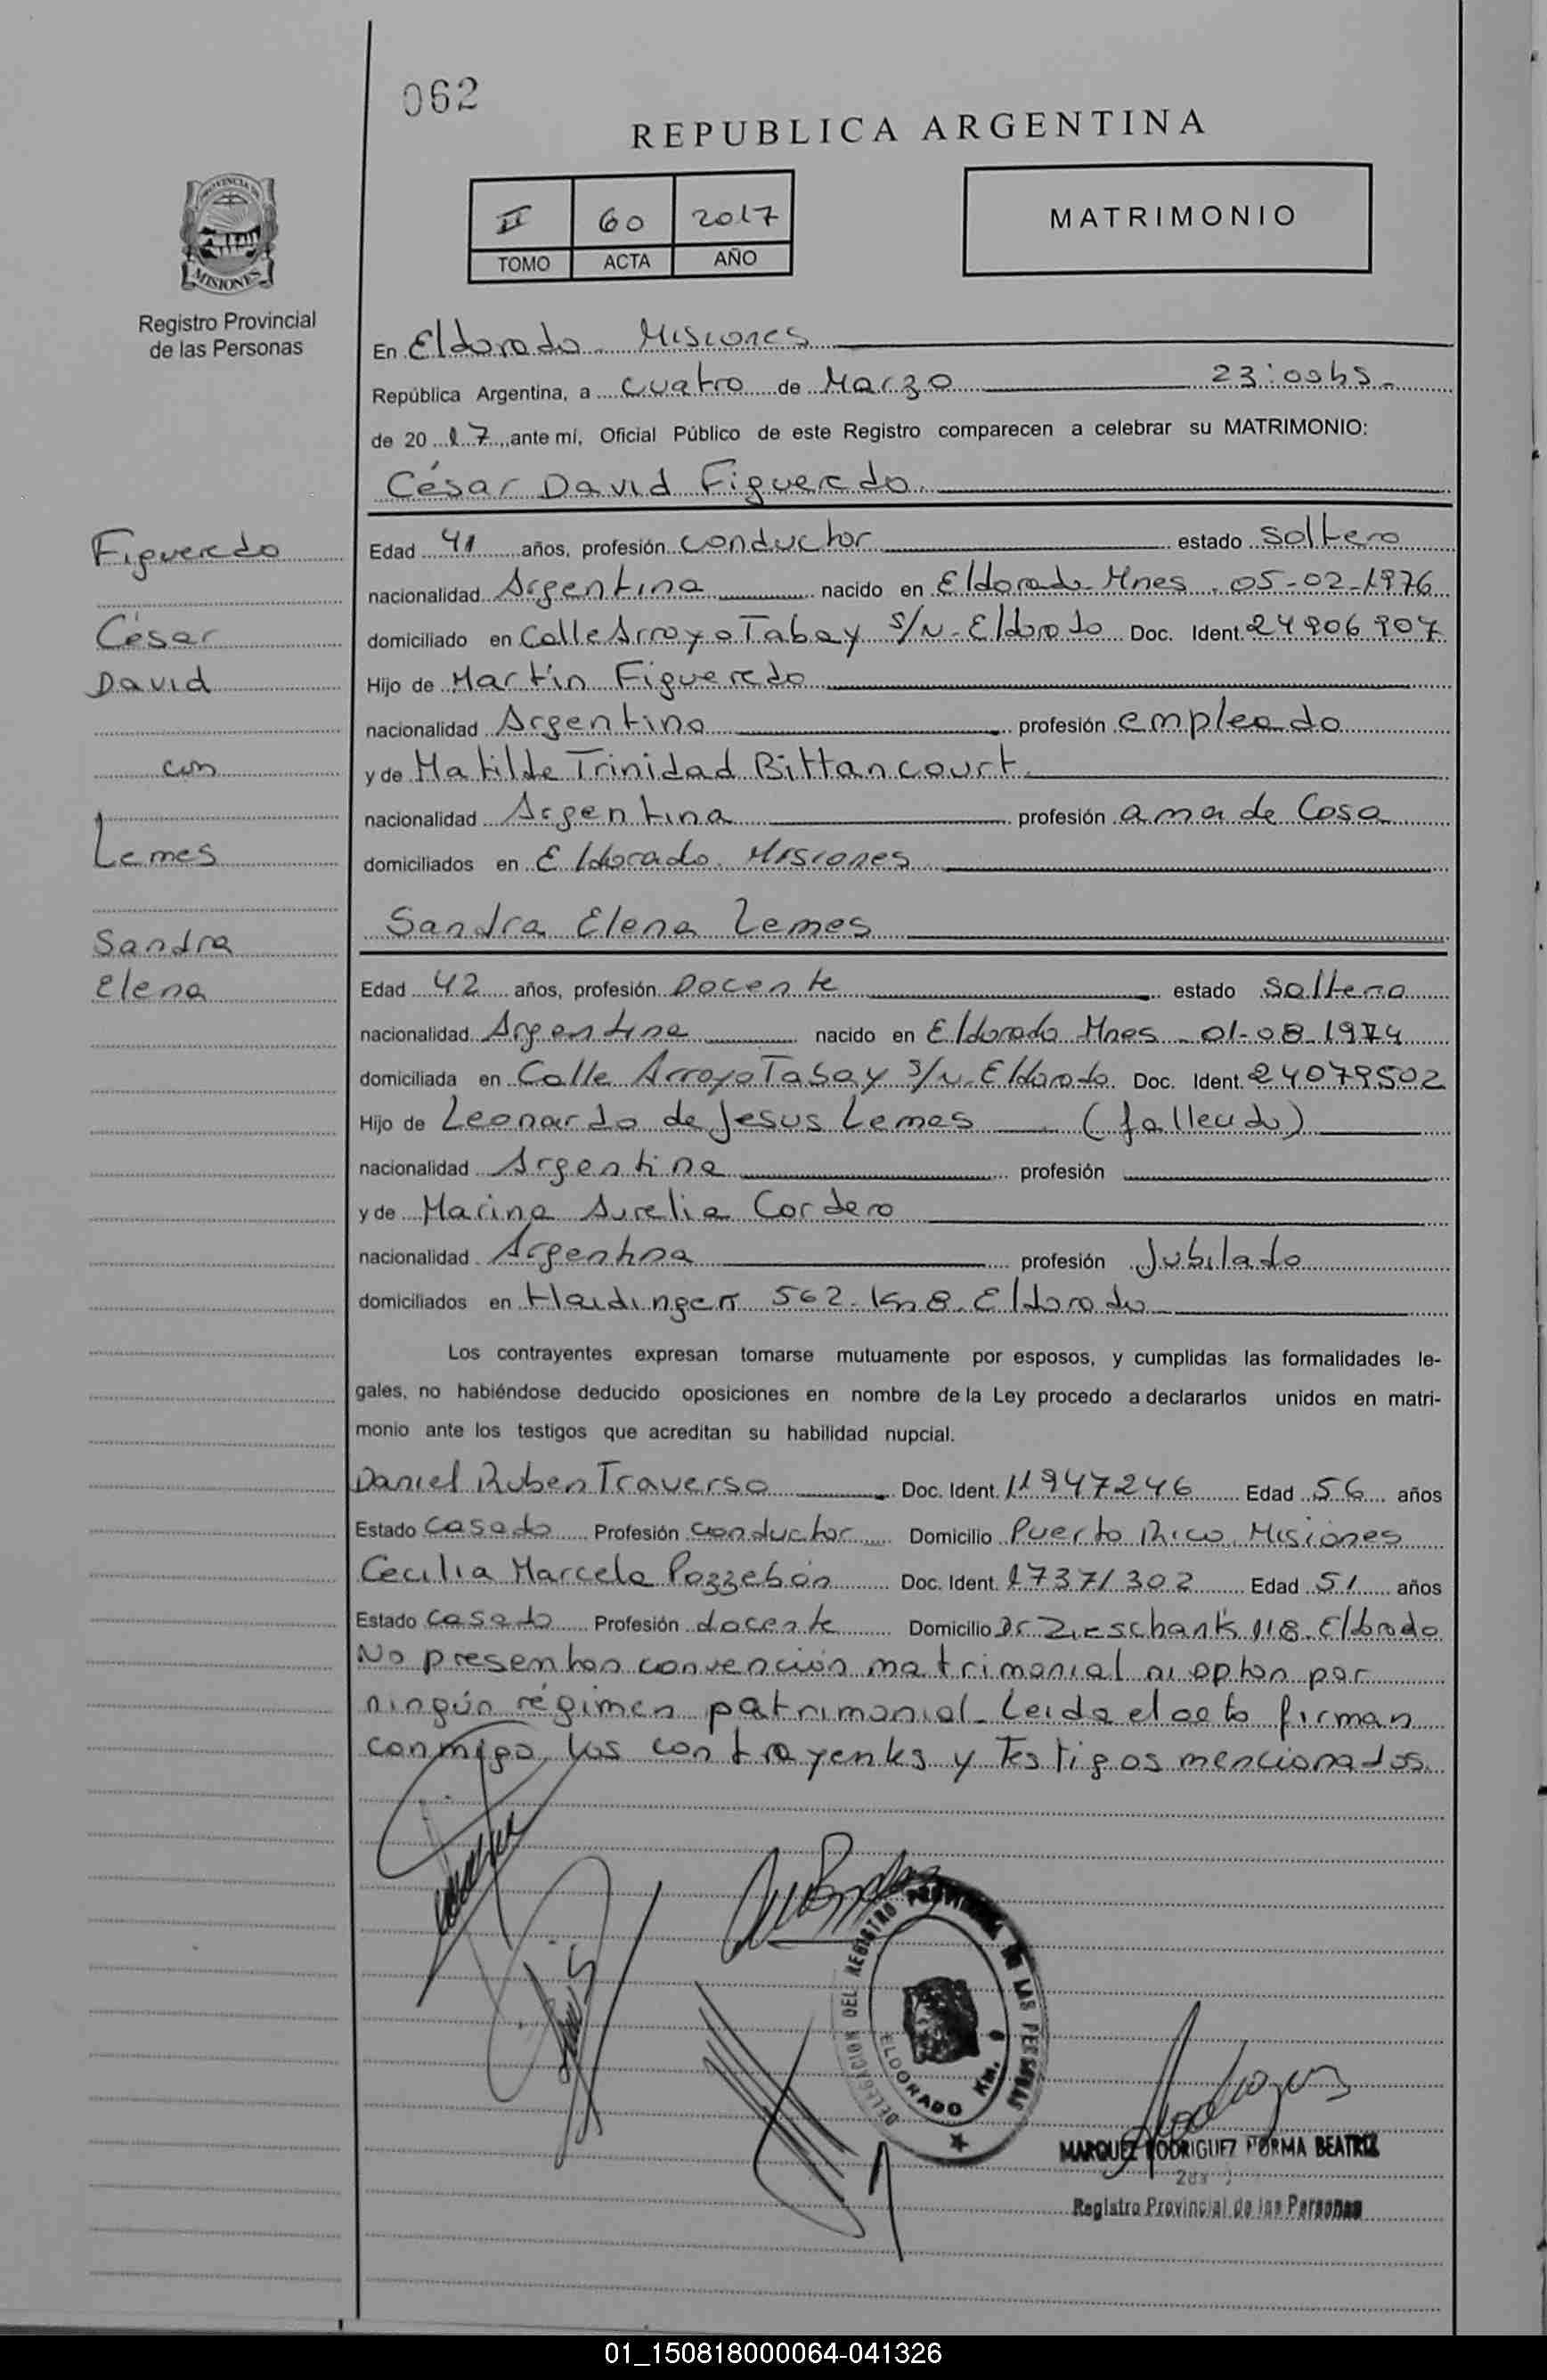 062
REPUBLICA ARGENTINA
II 60 2017
TOMO ACTA AÑO
MATRIMONIO
PROVINCIA DE
MISIONES
Registro Provincial
de las Personas
En Eldorado - Misiones
República Argentina, a cuatro de Marzo 23:00hs-
de 20 17, ante mí, Oficial Público de este Registro comparecen a celebrar su MATRIMONIO:
César David Figueredo
Figueredo
César
David
con
Lemes
Sandra
Elena
Edad 41 años, profesión conductor estado soltero
nacionalidad Argentina nacido en Eldorado Mnes - 05-02-1976
domiciliado en Calle Arroyo Tabay s/n - Eldorado Doc. Ident. 24906907
Hijo de Martín Figueredo
nacionalidad Argentino profesión empleado
y de Matilde Trinidad Bittancourt
nacionalidad Argentina profesión ama de Casa
domiciliados en Eldorado Misiones
Sandra Elena Lemes
Edad 42 años, profesión Docente estado soltera
nacionalidad Argentina nacido en Eldorado Mnes - 01-08-1974
domiciliada en Calle Arroyo Tabay s/n - Eldorado. Doc. Ident. 24079502
Hijo de Leonardo de Jesus Lemes (fallecido)
nacionalidad Argentina profesión
y de Marina Aurelia Cordero
nacionalidad Argentina profesión Jubilado
domiciliados en 562 - Km 8 - Eldorado
Los contrayentes expresan tomarse mutuamente por esposos, y cumplidas las formalidades le-
gales, no habiéndose deducido oposiciones en nombre de la Ley procedo a declararlos unidos en matri-
monio ante los testigos que acreditan su habilidad nupcial.
Daniel Ruben Traverso Doc. Ident. 11947246 Edad 56 años
Estado Casado Profesión conductor Domicilio Puerto Rico, Misiones
Cecilia Marcela Pozzebón Doc. Ident. 17371302 Edad 51 años
Estado Casado Profesión docente Domicilio Dr Zieschank 118 - Eldorado
No presentan convención matrimonial ni optan por
ningún régimen patrimonial - Leida el acto firman
conmigo, los contrayentes y Testigos mencionados.
DELEGACION DEL REGISTRO PROVINCIAL DE LAS PERSONAS
ELDORADO KM. 9
MARQUEZ RODRIGUEZ NORMA BEATRIZ
Registro Provincial de las Personas
01_150818000064-041326